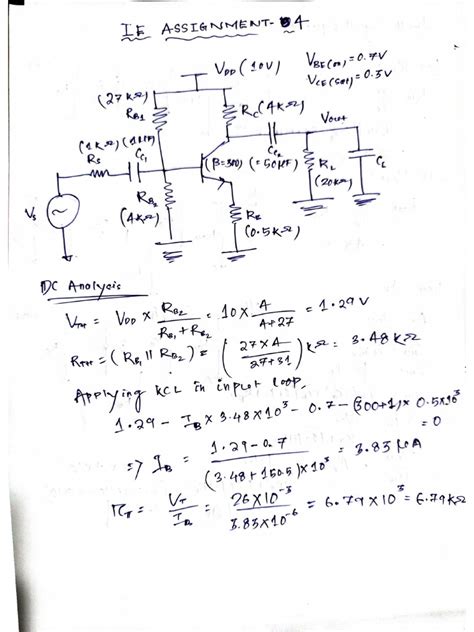 IE ASSIGNMENT-4
VDD (10V)
VBE(on) = 0.7V
VCE(sat) = 0.3V
(27kΩ)
RB1
RC (4kΩ)
Vout
(1kΩ) (1μF)
RS
CC1
CC2
(β=300) (=50μF)
RL
(20kΩ)
CL
VS
RB2
(4kΩ)
RE
(0.5kΩ)
DC Analysis
VTH = VDD × RB2 / (RB1 + RB2) = 10 × 4 / (4+27) = 1.29 V
RTH = (RB1 || RB2) = (27×4 / (27+31)) kΩ = 3.48 kΩ
Applying KCL in input loop,
1.29 - IB × 3.48×10³ - 0.7 - (300+1) × 0.5×10³ = 0
=> IB = (1.29-0.7) / ((3.48+150.5)×10³) = 3.83 μA
rπ = VT / IB = 26×10⁻³ / 3.83×10⁻⁶ = 6.79×10³ = 6.79kΩ